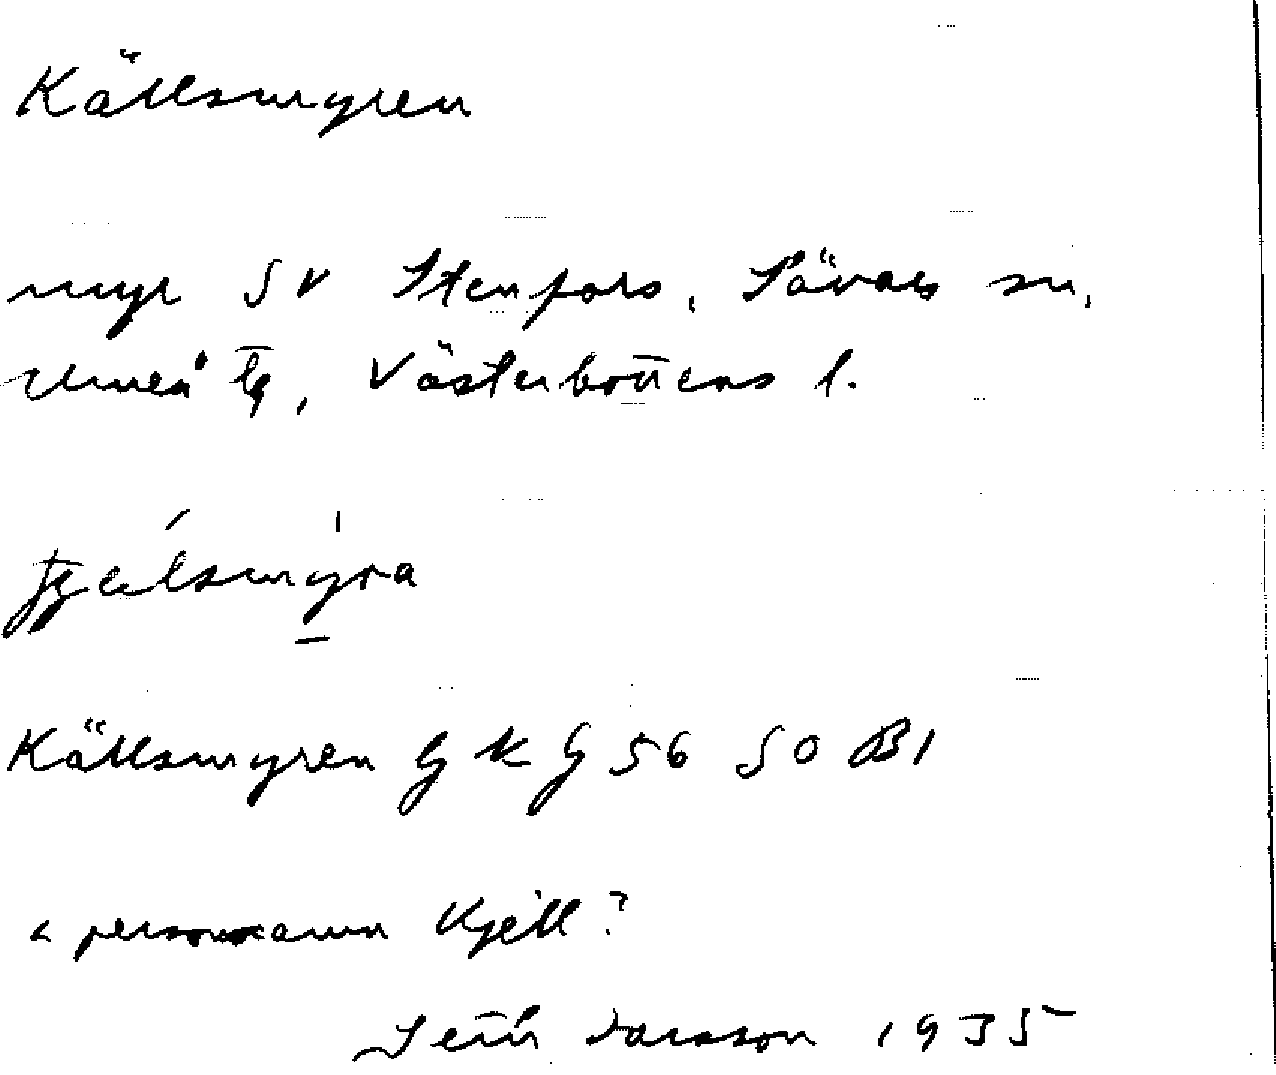 Källsmyren
myr SV Stenfors, Sävars sn,
Umeå tg, Västerbottens l.
Källsmyren GKG 56 SO B1
< personnamn Kjell?
Seth Larsson 1935